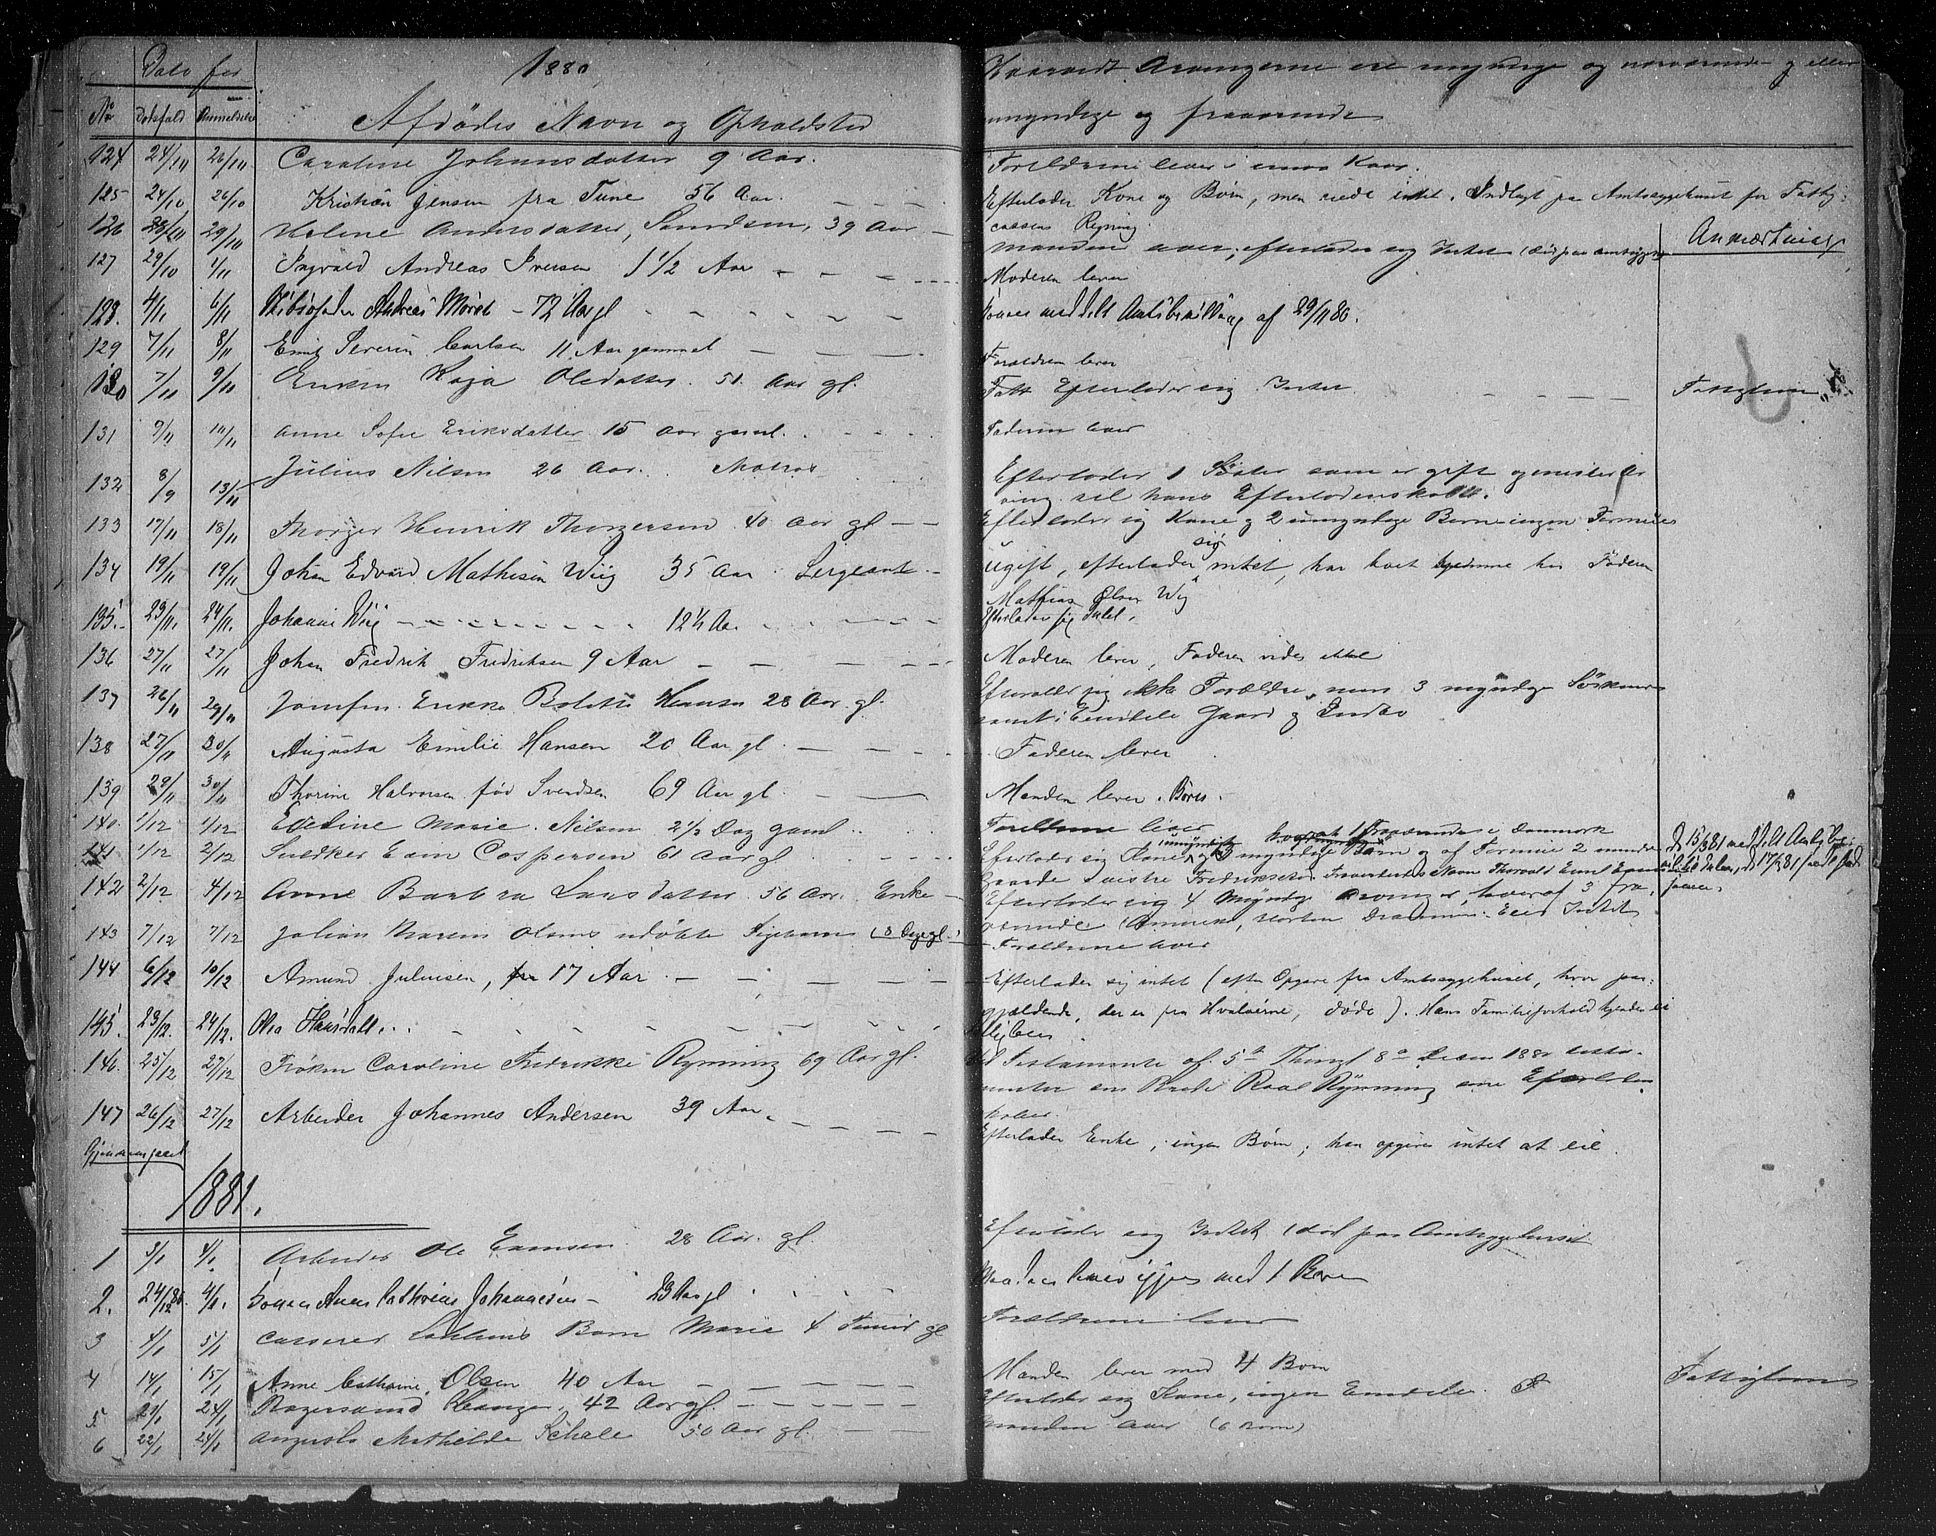 Dato for
1880
No Dødsfald Anmeldelse
Afdødes Navn og Opholdsted
Hvorvidt Arvingerne ere myndige og nærværende eller
umyndige og fraværende
Anmærkning
124 24/10 26/10 Caroline Johannsdatter 9 Aar.
Forældrene lever i smaa Kaar.
125 24/10 26/10 Kristian Jensen fra Tune 56 Aar.
Efterlader Kone og Børn, men eiede intet. Indlagt paa Amtssygehuset for Fattig-
cassens Regning.
126 28/10 29/10 Helene Andersdatter, 39 Aar
Manden lever; efterlader sig Intet
127 29/10 1/11 Ingvald Andreas Iversen 1 1/2 Aar
Moderen lever
128. 4/11 6/11 Andreas Morst - 72 Aar gl
meddelt Amtsbevilling af 29/11 80.
129 7/11 8/11 Emil Severin Carlsen 11 Aar gammel
Forældren lever
130 7/11 9/11 Enken Kaja Olsdatter 51 Aar gl.
Efterlader sig Intet
Fattiglem
131 9/11 11/11 Anne Sofie Eriksdatter 15 Aar gaml.
Faderen lever
132 8/9 13/11 Julius Nilsen 26 Aar. Matros
Efterlader 1 Søster som er gift og eneste Ar
ving til hans Efterladenskaber.
133 17/11 18/11 Thorger Henrik Thorgersen 40 Aar gl
Efterlader sig Kone og 2 umyndige Børn ingen Formue
134 19/11 19/11 Johan Edvard Mathisen Wiig 35 Aar. Sergeant
ugift, efterlader sig intet, har boet hjemme hos Faderen
Mathias Olsen Wiig
135. 23/11. 24/11. Johanne Wiig 12 1/2 Aar
Efterlader sig Intet.
136 27/11 27/11 Johan Fredrik Fredriksen 9 Aar
Moderen lever, Faderen vides ikke
137 26/11 29/11 Jomfru Erikke Bolette Hansen 28 Aar gl.
Efterlader sig ikke Forældre, men 3 myndige Søskende
samt Gaard og Indbo
138 27/11 30/11 Augusta Emilie Hansen 20 Aar gl.
Faderen lever
139 29/11 30/11 Thorine Halvorsen født Svendsen 69 Aar gl.
Manden lever. Børn.
140. 1/12 1/12 Eveline Marie Nilsen 2 1/2 Dag gaml
Forældrene lever
141 1/12 2/12 Snedker Caspersen 61 Aar gl
Efterlader sig Kone, og 3 myndige Børn og af Formue 2 mindre
Gaarde Fraværendes Navn Thorvald Emil
142 2/12 4/12 Anne Barbra Larsdatter 56 Aar. Enke
Efterlader sig 4 Myndige Arvinger, hvoraf 3 fra-
værende (Amerika, Horten, Drammen. Eier Intet
143 7/12 7/12 Julian Olsens udøbte Pigebarn (8 Dage gl.)
Forældrene lever
144 6/12 10/12 Amund Juliussen, 17 Aar
Efterlader sig intet (efter Opgave fra Amtssygehuset, hvor paa-
gjældende, der er fra Hvaløerne, døde). Hans Familieforhold kjendes ei
145. 23/12. 24/12. Olea Hansdatt.
146. 25/12 27/12 Frøken Caroline Fredrikke Rynning 69 Aar gl.
Testamente af 5te Thingl 8de Decbr 1880
Roal Rynning
147 26/12 27/12 Arbeider Johannes Andersen 39 Aar
Efterlader Enke, ingen Børn; han opgives intet at eie.
Gjennemgaaet
1881.
1 3/1 4/1 Arbeider Ole Evensen 28 Aar. gl.
Efterlader sig Intet (død paa Amtssygehuset
2. 24/12 80. 4/1. Konen Anne Cathrine Johannesen - 23 Aar gl
Manden lever igjen med 1 Barn
3 4/1 5/1 Casserer Barn Marie 4 Timer gl
Forældrene lever
4 14/1 15/1 Anne Cathrine Olsen 40 Aar
Manden lever med 4 Børn
Fattiglem
5 21/1 24/1 42 Aar gl.
Efterlader sig Kone, ingen
6 22/1 24/1 Augusta Mathilde Schale 50 Aar gl.
Manden lever (6 Børn)